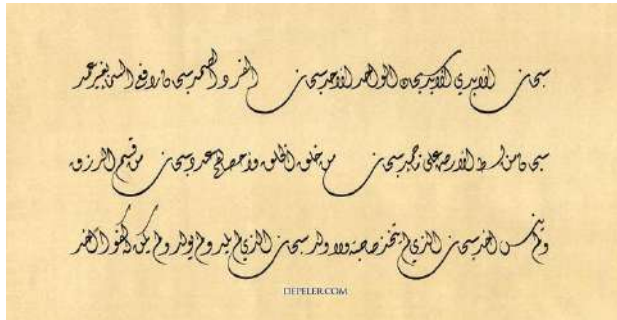 سبحان الأبدي الأبد سبحان الواحد الأحد سبحان الفرد الصمد سبحان رافع السماء بغير عمد
سبحان من بسط الأرض على ماء جمد سبحان من خلق الخلق وأحصاهم عدد سبحان من قسم الرزق
ولم ينس أحد سبحان الذي لم يتخذ صاحبة ولا ولد سبحان الذي لم يلد ولم يولد ولم يكن له كفوا أحد
DEPELER.COM